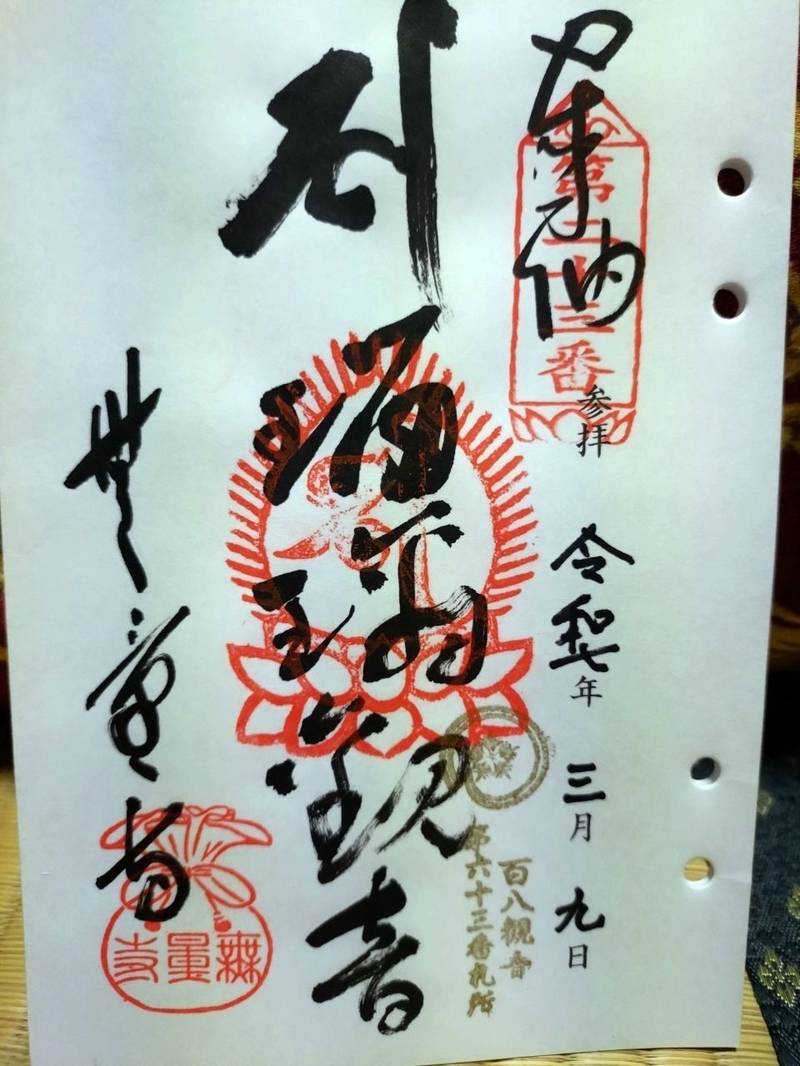 奉納
第二十三番
参拝
令和七年 三月 九日
百八観音
第六十三番札所
瑠璃観音
無量寺
無量寺